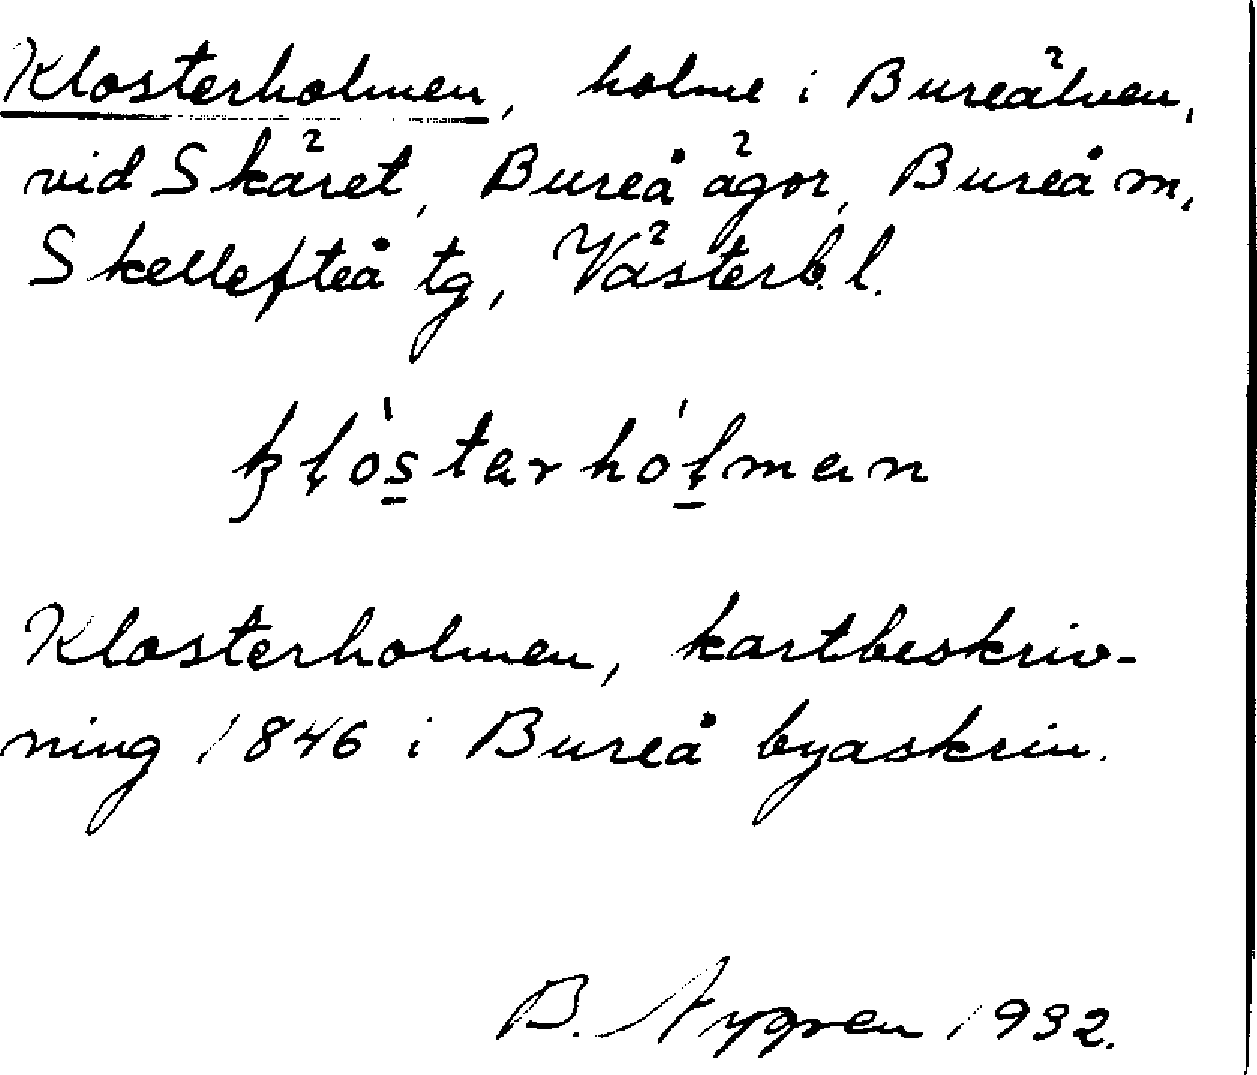 Klosterholmen, holme i Bureälven,
vid Skäret, Bureå ägor, Bureå m,
Skellefteå tg, Västerb. l.
klòstarhólman
Klosterholmen, kartbeskriv-
ning 1846 i Bureå byaskrin.
B. Nygren 1932.